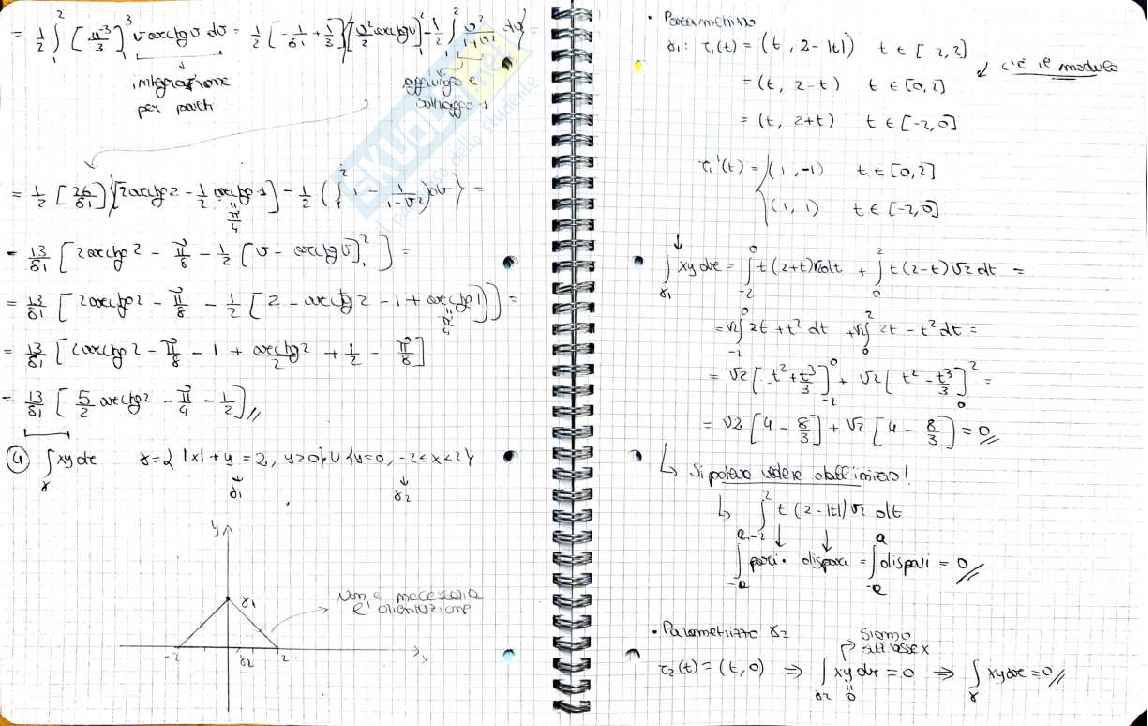 = 1/2 ∫₁² [u⁻³/3]₁³ v arctg v dv = 1/2 (-1/81 + 1/3) {[v²/2 arctg v]₁² - 1/2 ∫₁² v²/1+v² dv} =
integrazione
per parti
aggiungo e
sottraggo 1
= 1/2 [26/81] {[2arctg2 - 1/2 arctg 1] - 1/2 (∫₁² 1 - 1/1-v²) dv} =
π/4
= 13/81 [2arctg2 - π/8 - 1/2 [v - arctg v]₁²] =
= 13/81 [2arctg2 - π/8 - 1/2 [2 - arctg2 - 1 + arctg1]] =
π/4
= 13/81 [2arctg2 - π/8 - 1 + arctg2/2 + 1/2 - π/8]
= 13/81 [5/2 arctg2 - π/4 - 1/2] //
④ ∫ xy dr γ = { |x| + y = 2, y>0} ∪ {y=0, -2<x<2}
γ
γ1 γ2
y
γ1
non è necessaria
l'orientazione
-2 γ2 2 x
• Parametrizzo
γ1: r₁(t) = (t, 2-|t|) t ∈ [-2,2]
c'è il modulo
= (t, 2-t) t ∈ [0,2]
= (t, 2+t) t ∈ [-2,0]
r₁'(t) = { (1,-1) t ∈ [0,2]
(1,1) t ∈ [-2,0]
∫γ1 xy dr = ∫₋₂⁰ t(2+t)√2 dt + ∫₀² t(2-t)√2 dt =
= √2 ∫₋₂⁰ 2t + t² dt + √2 ∫₀² 2t - t² dt =
= √2 [t² + t³/3]₋₂⁰ + √2 [t² - t³/3]₀² =
= √2 [4 - 8/3] + √2 [4 - 8/3] = 0 //
↳ Si poteva vedere dall'inizio!
↳ ∫₋₂² t(2-|t|)√2 dt
∫₋ₐᵃ pari · dispari = ∫₋ₐᵃ dispari = 0 //
• Parametrizzo γ2
siamo
sull'asse x
r₂(t) = (t, 0) ⇒ ∫γ2 xy dr = 0 ⇒ ∫γ xy dr = 0 //
0